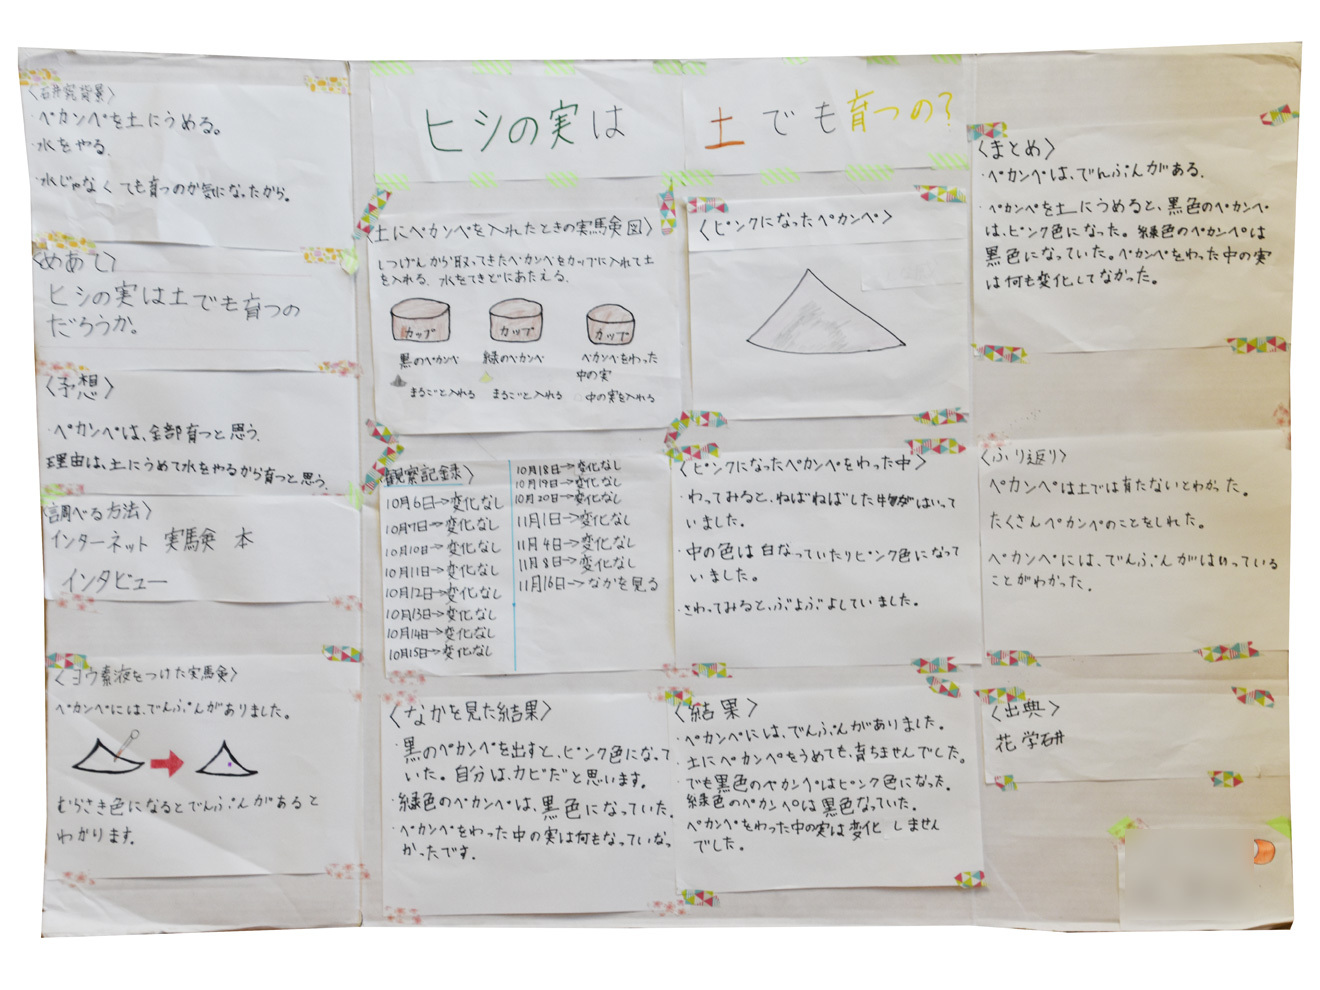 ヒシの実は 土でも育つの?
〈研究背景〉
・ペカンペを土にうめる。
・水をやる。
・水じゃなくても育つのか気になったから。
〈めあて〉
ヒシの実は土でも育つの
だろうか。
〈予想〉
・ペカンペは、全部育つと思う。
理由は、土にうめて水をやるから育つと思う。
〈調べる方法〉
インターネット 実験 本
インタビュー
〈ヨウ素液をつけた実験〉
ペカンペには、でんぷんがありました。
むらさき色になるとでんぷんがあると
わかります。
〈土にペカンペを入れたときの実験図〉
しつげんから取ってきたペカンペをカップに入れて土
を入れる。水をてきどにあたえる。
カップ カップ カップ
黒のペカンペ 緑のペカンペ ペカンペをわった
中の実
まるごと入れる まるごと入れる 中の実を入れる
観察記録〉
10月6日→変化なし
10月7日→変化なし
10月10日→変化なし
10月11日→変化なし
10月12日→変化なし
10月13日→変化なし
10月14日→変化なし
10月15日→変化なし
10月18日→変化なし
10月19日→変化なし
10月20日→変化なし
11月1日→変化なし
11月4日→変化なし
11月8日→変化なし
11月16日→なかを見る
〈なかを見た結果〉
・黒のペカンペを出すと、ピンク色になって
いた。自分は、カビだと思います。
・緑色のペカンペは、黒色になっていた。
・ペカンペをわった中の実は何もなっていな
かったです。
〈ピンクになったペカンペ〉
〈ピンクになったペカンペをわった中〉
・わってみると、ねばねばした物がはいって
いました。
・中の色は白なっていたりピンク色になって
いました。
・さわってみると、ぶよぶよしていました。
〈結果〉
・ペカンペには、でんぷんがありました。
・土にペカンペをうめても、育ちませんでした。
・でも黒色のペカンペはピンク色になった。
緑色のペカンペは黒色なっていた。
ペカンペをわった中の実は変化しません
でした。
〈まとめ〉
・ペカンペは、でんぷんがある。
・ペカンペを土にうめると、黒色のペカンペ
は、ピンク色になった。緑色のペカンペは
黒色になっていた。ペカンペをわった中の実
は何も変化してなかった。
〈ふり返り〉
ペカンペは土では育たないとわかった。
たくさんペカンペのことをしれた。
ペカンペには、でんぷんがはいっている
ことがわかった。
〈出典〉
花 学研